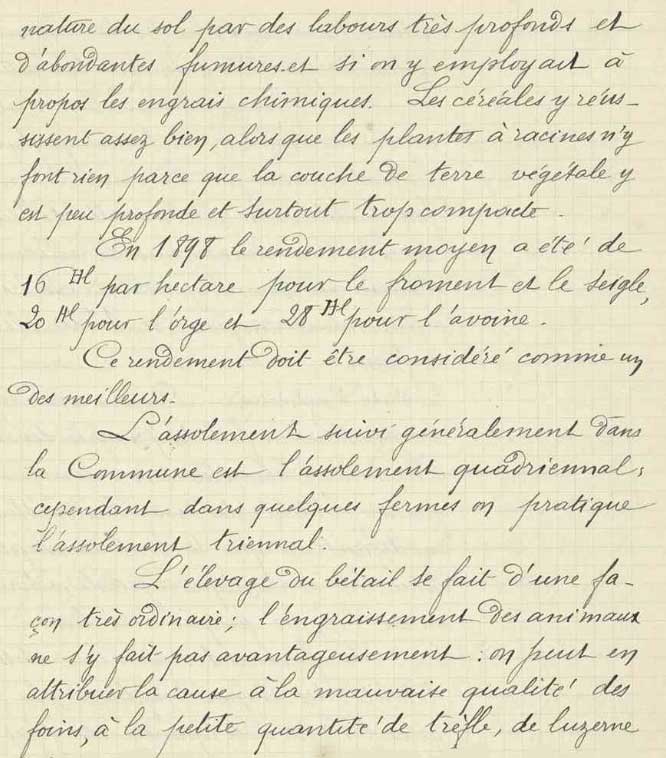 nature du sol par des labours très profonds et
d'abondantes fumures et si on y employait à
propos les engrais chimiques. Les céréales y réus-
sissent assez bien, alors que les plantes à racines n'y
font rien parce que la couche de terre végétale y
est peu profonde et surtout trop compacte.
En 1898 le rendement moyen a été de
16 Hl par hectare pour le froment et le seigle,
20 Hl pour l'orge et 28 Hl pour l'avoine.
Ce rendement doit être considéré comme un
des meilleurs.
L'assolement suivi généralement dans
la Commune est l'assolement quadriennal;
cependant dans quelques fermes on pratique
l'assolement triennal.
L'élevage du bétail se fait d'une fa-
çon très ordinaire; l'engraissement des animaux
ne s'y fait pas avantageusement : on peut en
attribuer la cause à la mauvaise qualité des
foins, à la petite quantité de trèfle, de luzerne